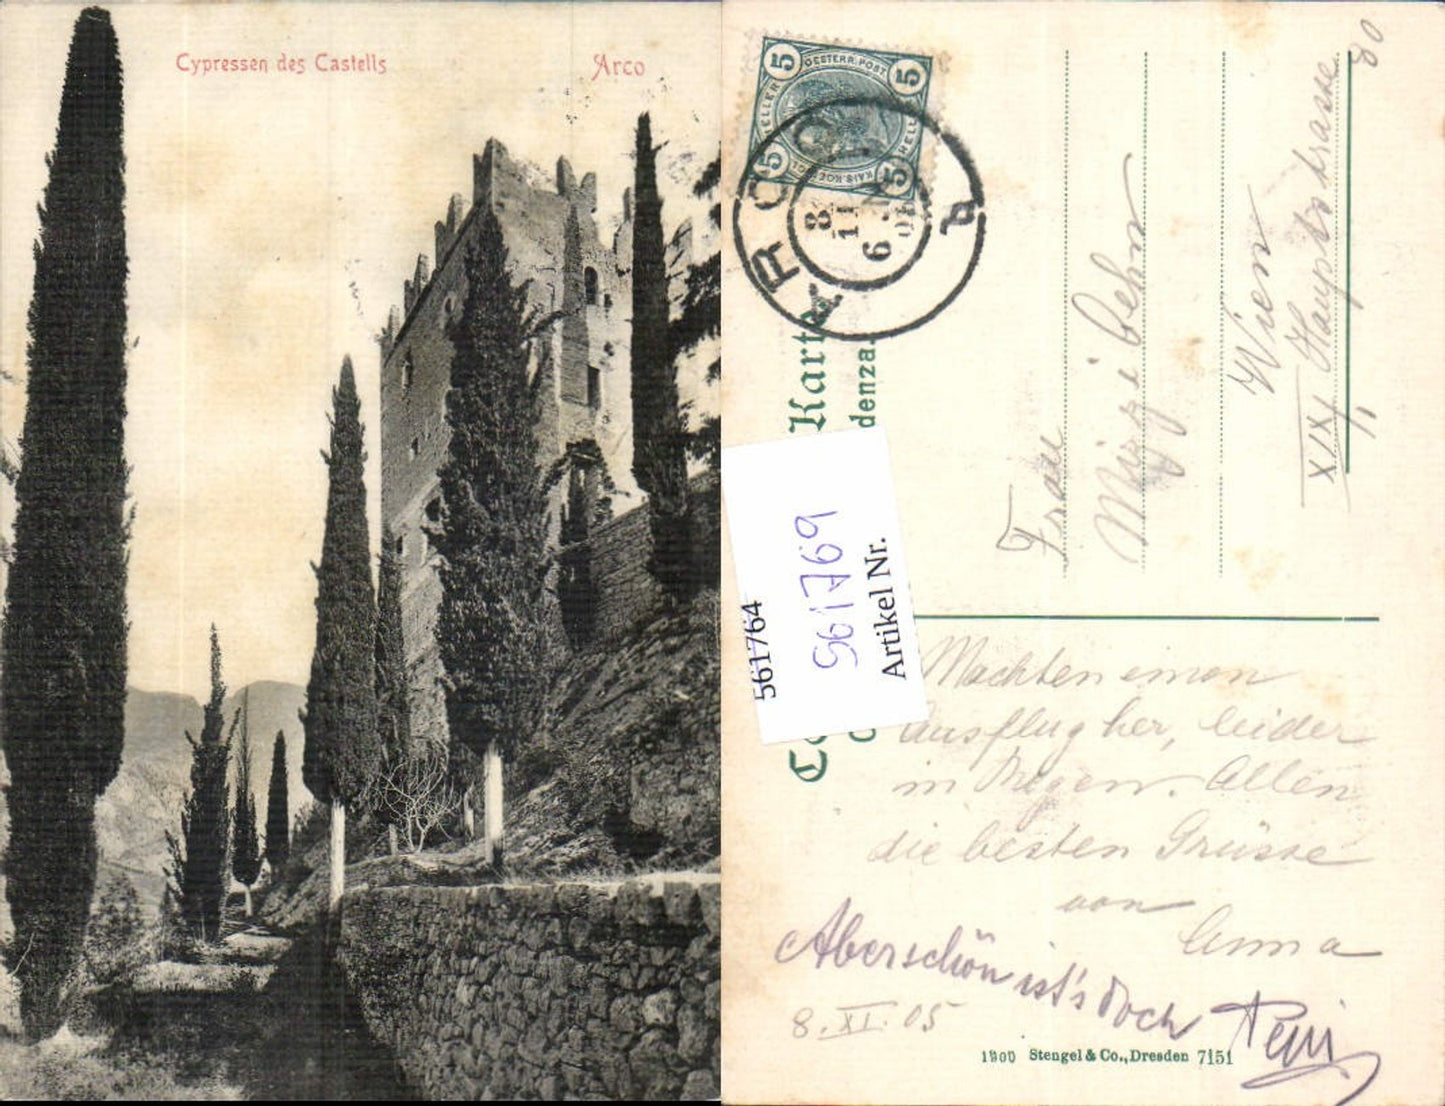 Cypressen des Castells
Arco
5 OESTERR. POST. 5
HELLER
HELLER
5 KAIS. KOE 5
ARCO
8 11
6
Karte
denza.
561764
561769
Artikel Nr.
80
Frau
Mizzi
Wien
XIX, Hauptstrasse
Machten einen
Ausflug her, leider
in Regen. Allen
die besten Grüsse
von
Anna
Aber schön ist's doch
8. XI. 05
1900 Stengel & Co., Dresden 7151